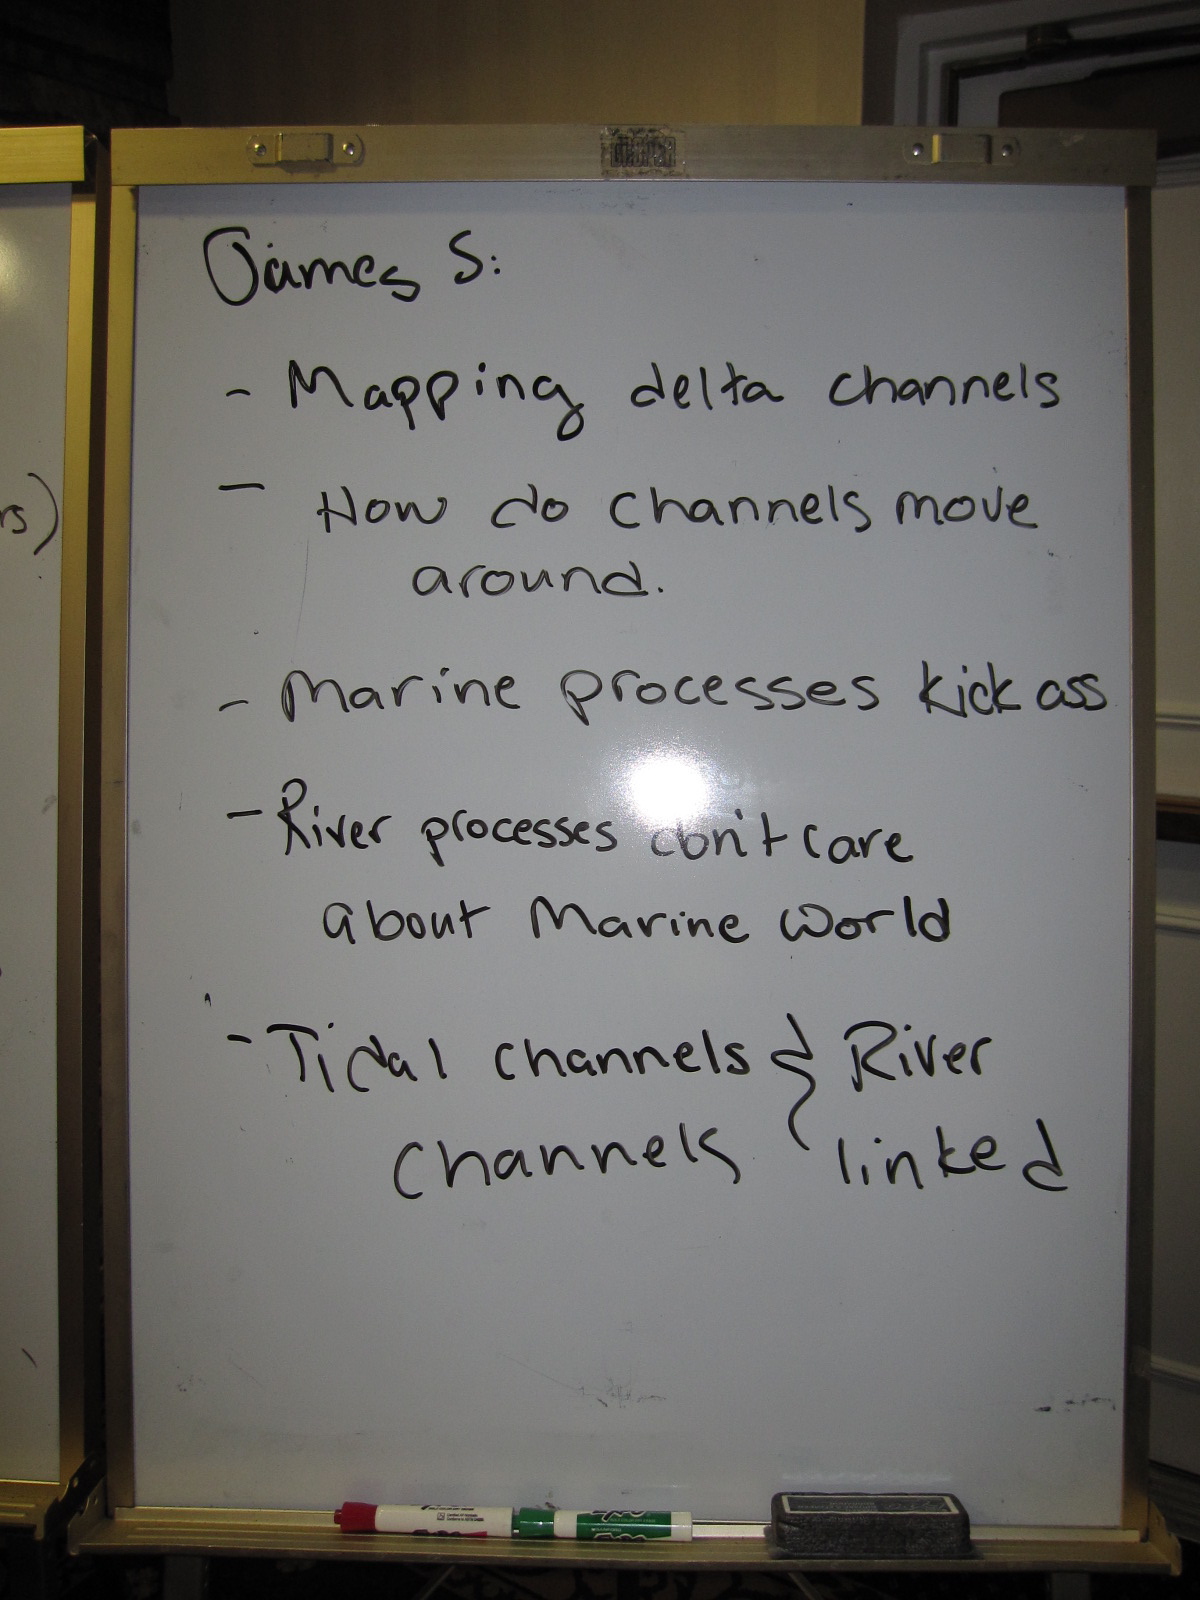 James S:
- Mapping delta channels
- How do channels move
around.
rs)
- Marine processes kick ass
- River processes don't care
about Marine World
- Tidal channels & River
channels linked